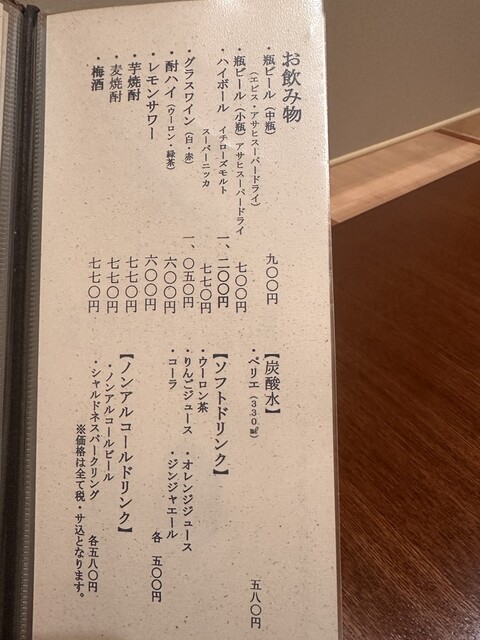 お飲み物
・瓶ビール(中瓶) 九〇〇円
(エビス・アサヒスーパードライ)
・瓶ビール(小瓶) アサヒスーパードライ 七〇〇円
・ハイボール イチローズモルト 一、二〇〇円
スーパーニッカ 七七〇円
・グラスワイン(白・赤) 一、〇五〇円
・酎ハイ(ウーロン・緑茶) 六〇〇円
・レモンサワー 六〇〇円
・芋焼酎 七七〇円
・麦焼酎 七七〇円
・梅酒 七七〇円
【炭酸水】
・ペリエ(330㎖) 五八〇円
【ソフトドリンク】
・ウーロン茶
・りんごジュース ・オレンジジュース
・コーラ ・ジンジャエール
各 五〇〇円
【ノンアルコールドリンク】
・ノンアルコールビール
・シャルドネスパークリング 各五八〇円
※価格は全て税・サ込となります。